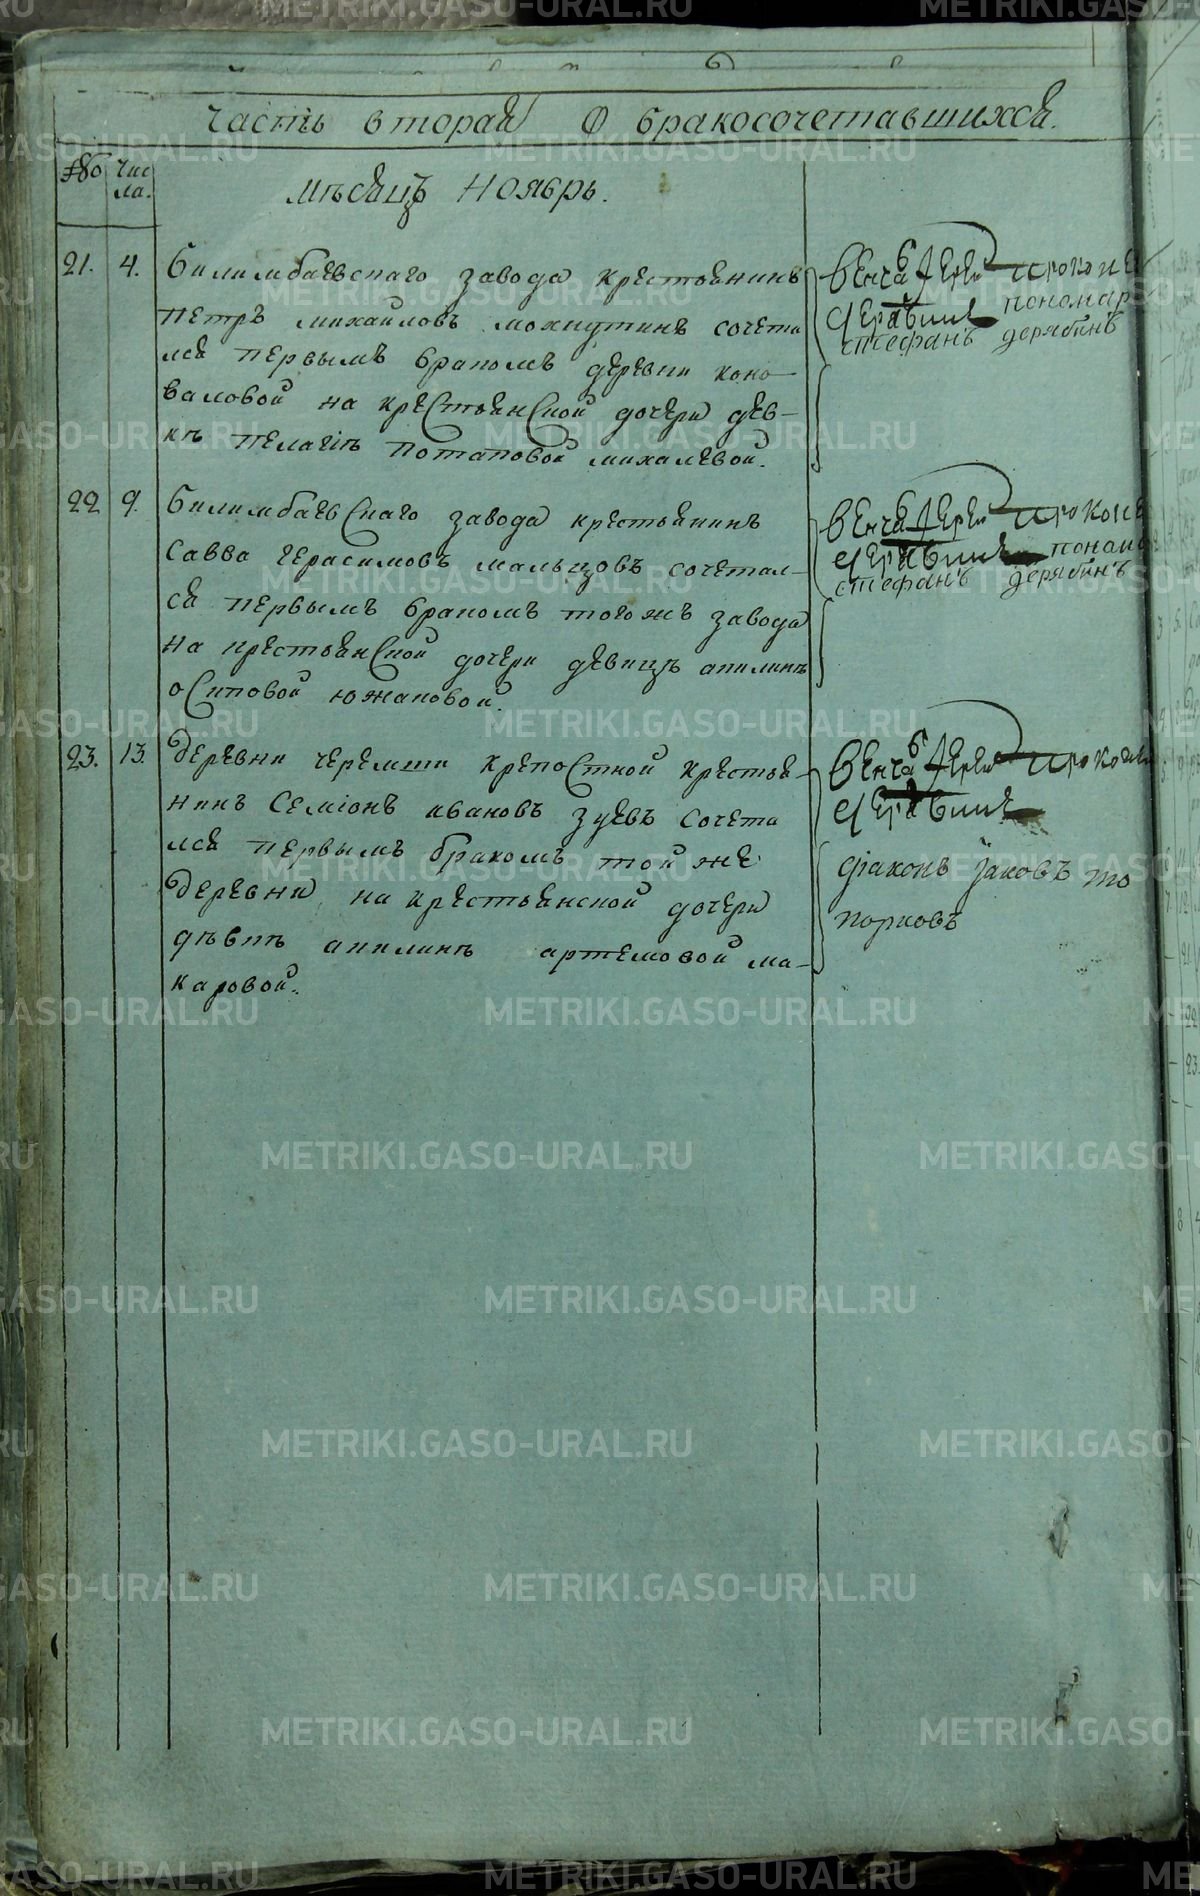 Часть вторая О бракосочетавшихся.
№ Чис
ла.
Мѣсяцъ Ноябрь.
21. 4. Билимбаевскаго завода крестьянинъ
Петръ Михайловъ Мохнутинъ сочета
лся первымъ бракомъ деревни Коно
валовой на крестьянской дочери дев-
кѣ Пелагіѣ Потаповой Михалевой.
Венча Іерей Прокопе
Стефанъ пономар
Дерябинъ
22 9. Билимбаевскаго завода крестьянинъ
Савва Герасимовъ Мальцовъ сочетал-
ся первымъ бракомъ тогожъ завода
на крестьянской дочери девицѣ Акилинѣ
Осиповой Южаковой.
Венча Іерей Прокопе
понома
Стефанъ Дерябинъ
23. 13. Деревни Черемши крепостной крестья-
нинъ Семіонъ Ивановъ Зуевъ сочета
лся первымъ бракомъ той же
деревни на крестьянской дочери
дѣвкѣ Акилинѣ Артемовой Ма-
каровой.
Венча Іерей Прокопе
Діаконъ Іаковъ То
порковъ
METRIKI.GASO-URAL.RU